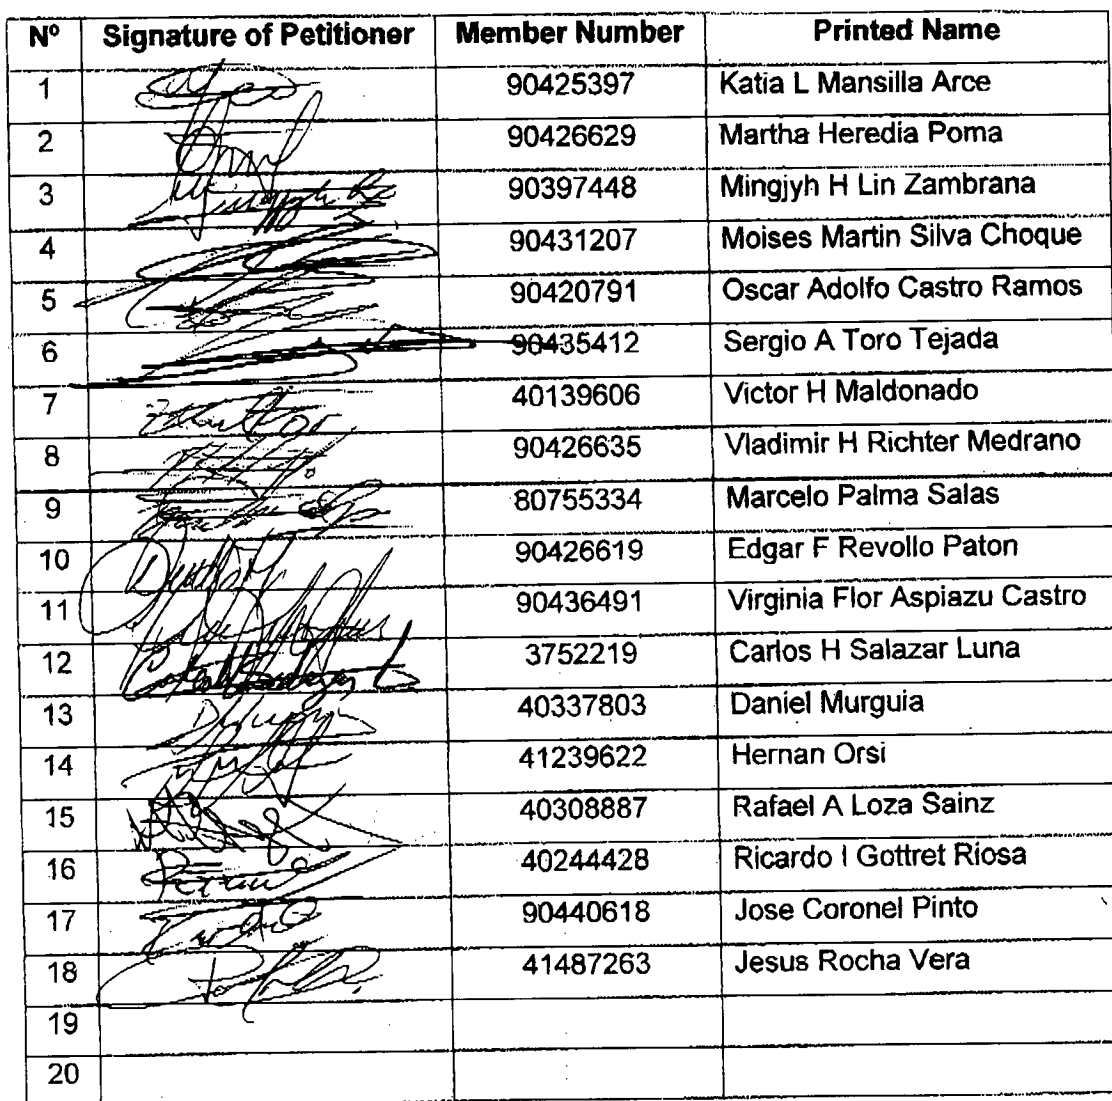 Nº Signature of Petitioner Member Number Printed Name
1 90425397 Katia L Mansilla Arce
2 90426629 Martha Heredia Poma
3 90397448 Mingjyh H Lin Zambrana
4 90431207 Moises Martin Silva Choque
5 90420791 Oscar Adolfo Castro Ramos
6 90435412 Sergio A Toro Tejada
7 40139606 Victor H Maldonado
8 90426635 Vladimir H Richter Medrano
9 80755334 Marcelo Palma Salas
10 90426619 Edgar F Revollo Paton
11 90436491 Virginia Flor Aspiazu Castro
12 3752219 Carlos H Salazar Luna
13 40337803 Daniel Murguia
14 41239622 Hernan Orsi
15 40308887 Rafael A Loza Sainz
16 40244428 Ricardo I Gottret Riosa
17 90440618 Jose Coronel Pinto
18 41487263 Jesus Rocha Vera
19
20